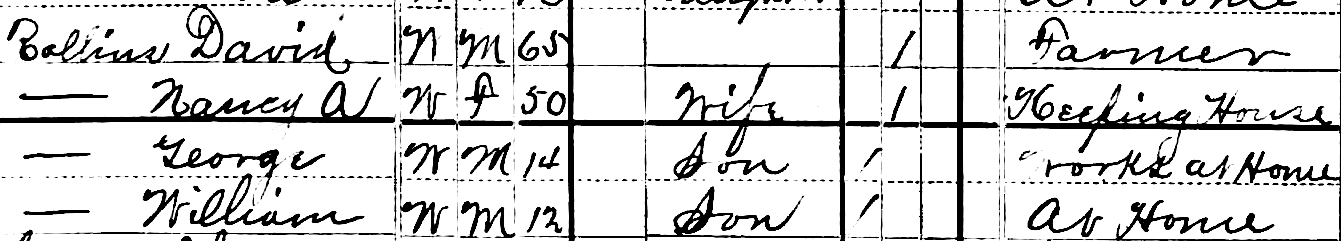 Rollins David W M 65 / Farmer
— Nancy A W F 50 Wife / Keeping House
— George W M 14 Son / Works at Home
— William W M 12 Son / At Home